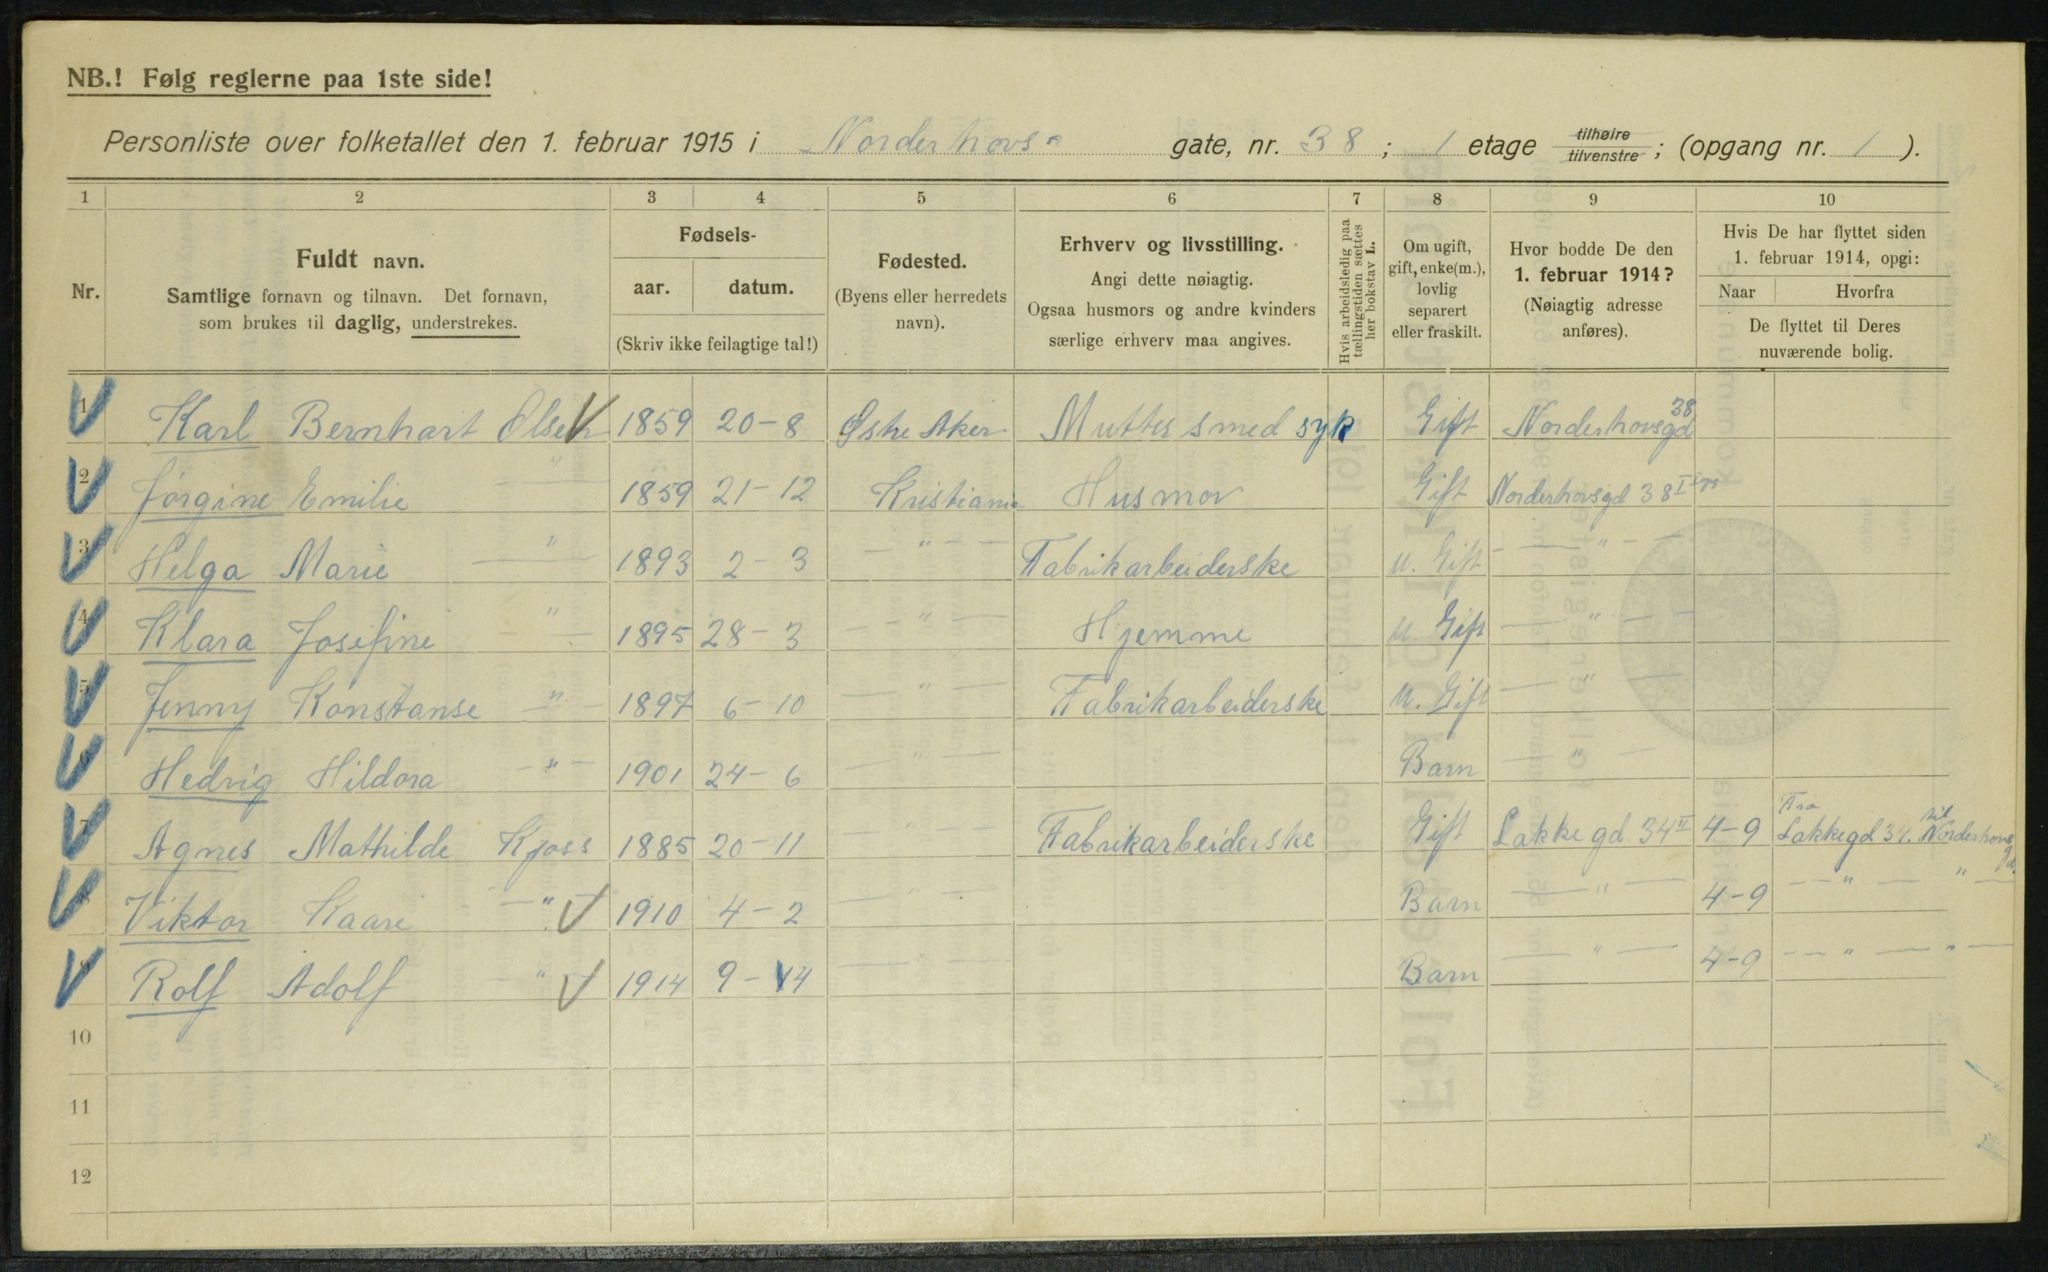 NB.! Følg reglerne paa 1ste side!
Personliste over folketallet den 1. februar 1915 i Norderhovs gate, nr. 38 ; 1 etage tilhøire tilvenstre ; (opgang nr. 1 ).
1 2 3 4 5 6 7 8 9 10
Nr.
Fuldt navn.
Samtlige fornavn og tilnavn. Det fornavn,
som brukes til daglig, understrekes.
Fødsels-
aar. datum.
(Skriv ikke feilagtige tal!)
Fødested.
(Byens eller herredets
navn).
Erhverv og livsstilling.
Angi dette nøiagtig.
Ogsaa husmors og andre kvinders
særlige erhverv maa angives.
Hvis arbeidsledig paa
tællingstiden sættes
her bokstav L.
Om ugift,
gift, enke(m.),
lovlig
separert
eller fraskilt.
Hvor bodde De den
1. februar 1914?
(Nøiagtig adresse
anføres).
Hvis De har flyttet siden
1. februar 1914, opgi:
Naar Hvorfra
De flyttet til Deres
nuværende bolig.
1 Karl Bernhart Olsen 1859 20-8 Østre Aker Mutter smed syk Gift Norderhovsgd 38
2 Jørgine Emilie — " — 1859 21-12 Kristiania Husmor Gift Norderhovsgd 38 I
3 Helga Marie — " — 1893 2-3 — " — Fabrikarbeiderske u. Gift — " —
4 Klara Josefine — " — 1895 28-3 — " — Hjemme u. Gift — " —
5 Jenny Konstanse — " — 1897 6-10 — " — Fabrikarbeiderske u. Gift — " —
6 Hedvig Hildora — " — 1901 24-6 — " — Barn — " —
7 Agnes Mathilde Kjoss 1885 20-11 — " — Fabrikarbeiderske Gift Lakkegd. 34 II 4-9 Fra Lakkegd 34. til Norderhovs gd
8 Viktor Kaare — " — 1910 4-2 — " — Barn — " — 4-9 — " — " —
9 Rolf Adolf — " — 1914 9-4 — " — Barn — " — 4-9 — " — " —
10
11
12